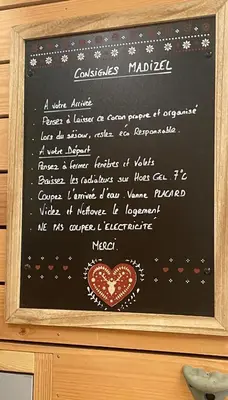 CONSIGNES MADIZEL
. A votre Arrivée
Pensez à laisser ce cocon propre et organisé
. Lors du séjour, restez eco Responsable.
. A votre Départ
Pensez à fermer fenêtres et Volets
. Baissez les radiateurs sur Hors GEL. 7°C
. Coupez l'arrivée d'eau. Vanne PLACARD
. Videz et Nettoyez le logement
. NE PAS COUPER L'ELECTRICITE
MERCI.